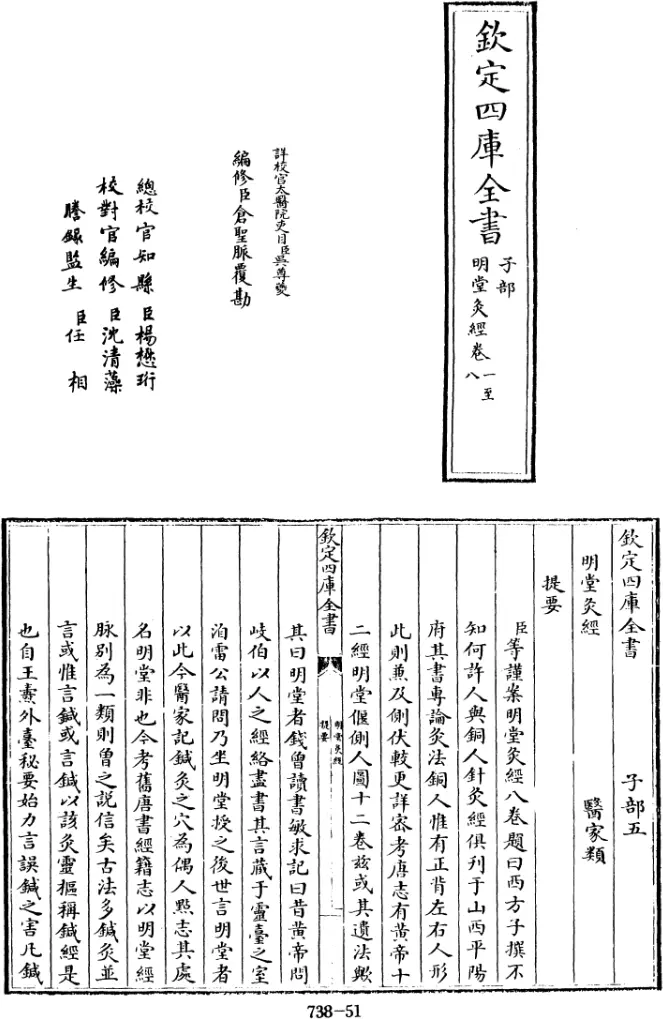 欽定四庫全書
子部
明堂灸經卷一至八
詳校官太醫院吏目臣吳尊夔
編修臣倉聖脈覆勘
總校官知縣臣楊懋珩
校對官編修臣沈清藻
謄錄監生臣任相
欽定四庫全書 子部五
明堂灸經 醫家類
提要
臣等謹案明堂灸經八卷題曰西方子撰不
知何許人與銅人針灸經俱刊于山西平陽
府其書專論灸法銅人惟有正背左右人形
此則兼及側伏較更詳密考唐志有黃帝十
二經明堂偃側人圖十二卷兹或其遺法歟
欽定四庫全書
明堂灸經
提要
其曰明堂者錢曾讀書敏求記曰昔黃帝問
岐伯以人之經絡盡書其言藏于靈臺之室
洎雷公請問乃坐明堂授之後世言明堂者
以此今醫家記鍼灸之穴為偶人點志其處
名明堂非也今考舊唐書經籍志以明堂經
脉別為一類則曾之説信矣古法多鍼灸並
言或惟言鍼或言鍼以該灸靈樞稱鍼經是
也自王燾外臺秘要始力言誤鍼之害凡鍼
738-51